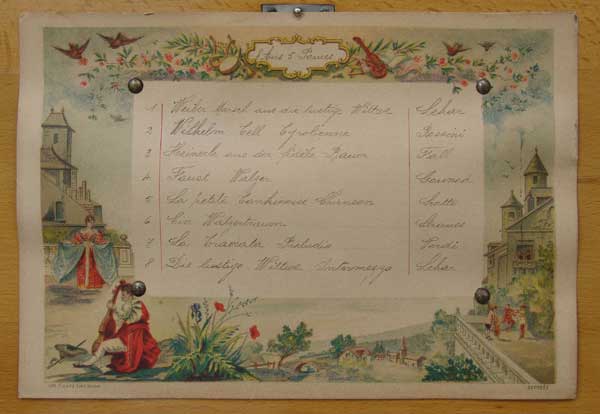 8 Airs 5 Pennes
1 Weiber Marsch aus die lustige Witwe Lehar
2 Wilhelm Tell Tyrolienne Rossini
3 Heinerle aus der fidele Bauer Fall
4 Faust Walzer Gounod
5 La petite Tonkinoise Chanson Scotto
6 Ein Walzertraum Strauss
7 La Traviata Preludio Verdi
8 Die lustige Wittwe Intermezzo Lehar